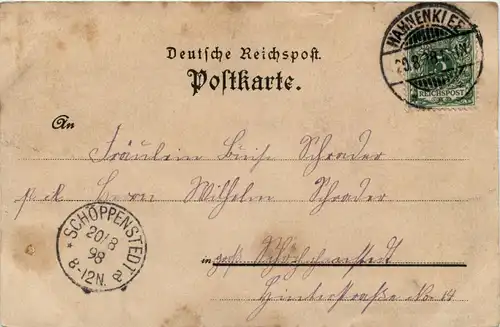 HAHNENKLEE
29.8.98
REICHSPOST
Deutsche Reichspost.
Postkarte.
An
Fräulein Luise Schrader
Herrn Wilhelm Schrader
SCHÖPPENSTEDT
20/8
98
8-12N.
a
in Schöppenstedt
No 14